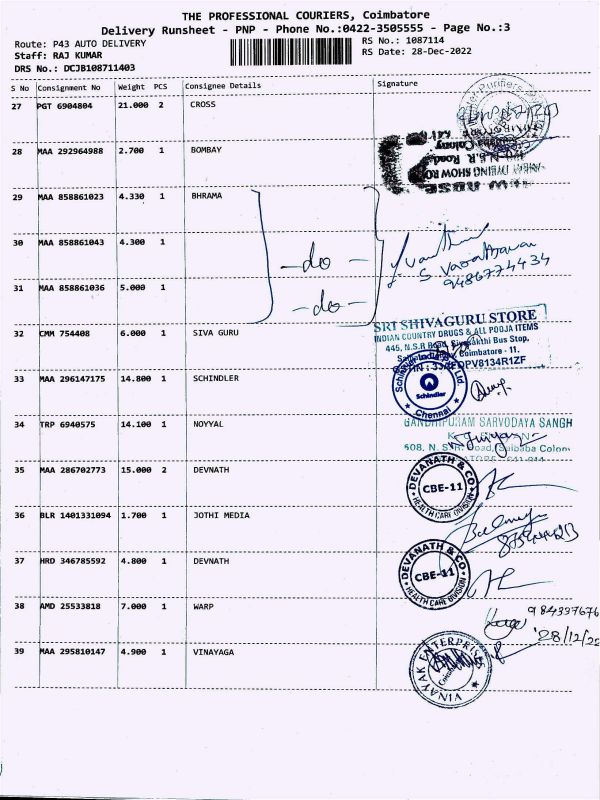 THE PROFESSIONAL COURIERS, Coimbatore
Delivery Runsheet - PNP - Phone No.:0422-3505555 - Page No.:3
Route: P43 AUTO DELIVERY
Staff: RAJ KUMAR
DRS No.: DCJB108711403
RS No.: 1087114
RS Date: 28-Dec-2022
S No Consignment No Weight PCS Consignee Details Signature
27 PGT 6904804 21.000 2 CROSS
28 MAA 292964988 2.700 1 BOMBAY
N.S.R. Road
DYEING SHOW ROOM
29 MAA 858861023 4.330 1 BHRAMA
30 MAA 858861043 4.300 1 -do-
9486774434
31 MAA 858861036 5.000 1 -do-
SRI SHIVAGURU STORE
INDIAN COUNTRY DRUGS & ALL POOJA ITEMS
445, N.S.R Road, Sivasakthi Bus Stop,
Coimbatore - 11.
32 CMM 754408 6.000 1 SIVA GURU
33 MAA 296147175 14.800 1 SCHINDLER
Schindler
Chennai
34 TRP 6940575 14.100 1 NOYYAL
GANDHIPURAM SARVODAYA SANGH
35 MAA 286702773 15.000 2 DEVNATH
DEVANATH & CO
CBE-11
HEALTH CARE DIVISION
36 BLR 1401331094 1.700 1 JOTHI MEDIA
37 HRD 346785592 4.800 1 DEVNATH
DEVANATH & CO
CBE-11
HEALTH CARE DIVISION
38 AMD 25533818 7.000 1 WARP
28/12/22
39 MAA 295810147 4.900 1 VINAYAGA
VINAYAK ENTERPRISE